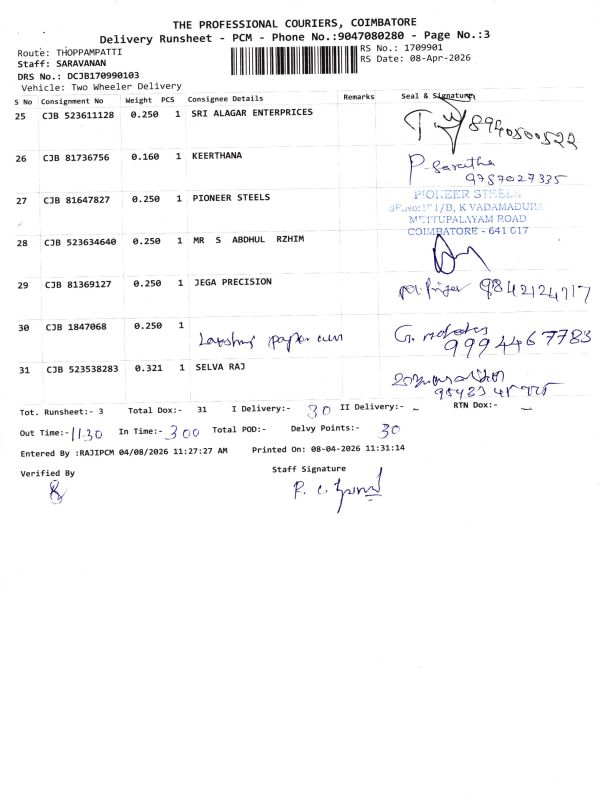 THE PROFESSIONAL COURIERS, COIMBATORE
Delivery Runsheet - PCM - Phone No.:9047080280 - Page No.:3
Route: THOPPAMPATTI
RS No.: 1709901
Staff: SARAVANAN
RS Date: 08-Apr-2026
DRS No.: DCJB170990103
Vehicle: Two Wheeler Delivery
S No Consignment No Weight PCS Consignee Details Remarks Seal & Signature
25 CJB 523611128 0.250 1 SRI ALAGAR ENTERPRICES 8940500522
26 CJB 81736756 0.160 1 KEERTHANA P. Saretha
9787027335
27 CJB 81647827 0.250 1 PIONEER STEELS PIONEER STEELS
1/B, K VADAMADURA
METTUPALAYAM ROAD
COIMBATORE - 641 017
28 CJB 523634640 0.250 1 MR S ABDHUL RZHIM
29 CJB 81369127 0.250 1 JEGA PRECISION 9842124717
30 CJB 1847068 0.250 1 paper G.
9994467783
31 CJB 523538283 0.321 1 SELVA RAJ
Tot. Runsheet:- 3 Total Dox:- 31 I Delivery:- 30 II Delivery:- - RTN Dox:- -
Out Time:- 11.30 In Time:- 3.00 Total POD:- Delvy Points:- 30
Entered By :RAJIPCM 04/08/2026 11:27:27 AM Printed On: 08-04-2026 11:31:14
Verified By Staff Signature